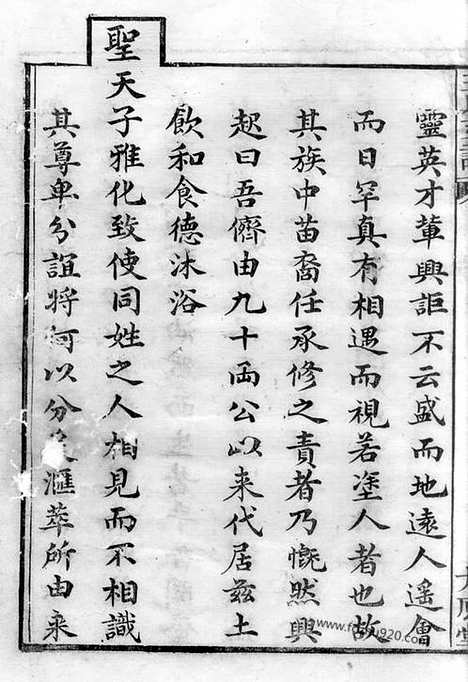 靈英才輩興詎不云盛而地遠人遥會
而日罕真有相遇而視若塗人者也故
其族中苗裔任承修之責者乃慨然興
起曰吾儕由九十𠕇公以来代居兹土
飲和食德沐浴
聖天子雅化致使同姓之人相見而不相識
其尊卑分誼將何以分是滙萃所由来